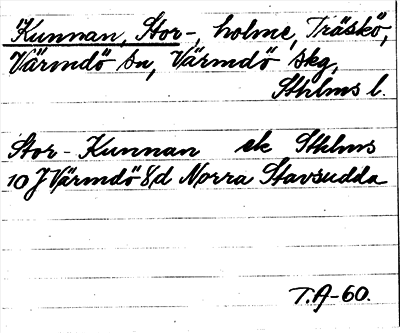 Kunnan, Stor-, holme, Träskö,
Värmdö sn, Värmdö skg,
Sthlms l.
Stor-Kunnan ek Sthlms
10 J Värmdö Sd Norra Stavsudda
T.A-60.